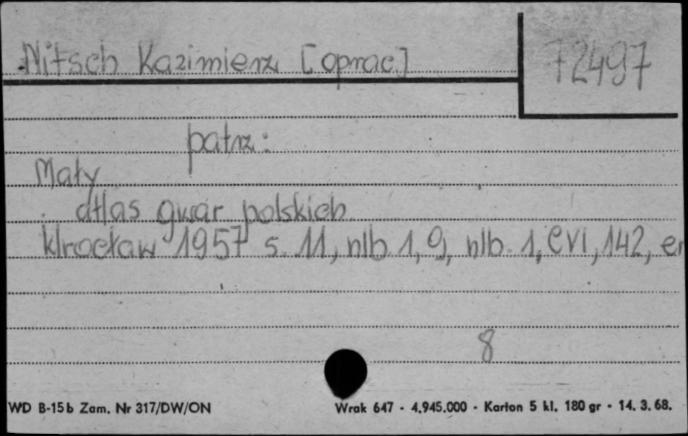 Nitsch Kazimierz [oprac]
72497
patrz:
Mały
atlas gwar polskich
Wrocław 1957 s. 11, nlb. 1, 9, nlb. 1, CVI, 142,
8
WD B-15b Zam. Nr 317/DW/ON
Wrak 647 - 4.945.000 - Karton 5 kl. 180 gr - 14. 3. 68.